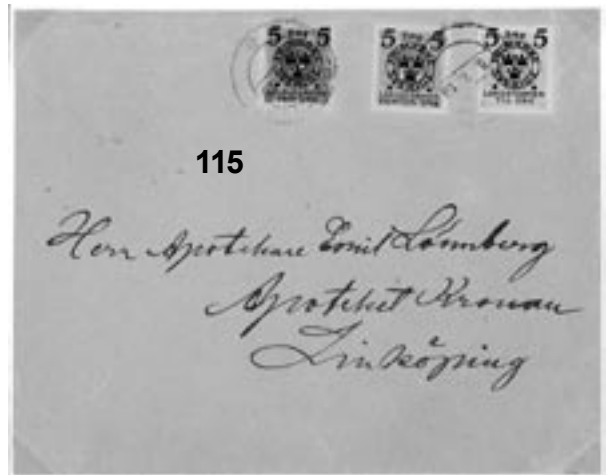 5 ÖRE 5 5 ÖRE 5 5 ÖRE 5
115
Herr Apotekare Emil Lönnberg
Apoteket Kronan
Linköping